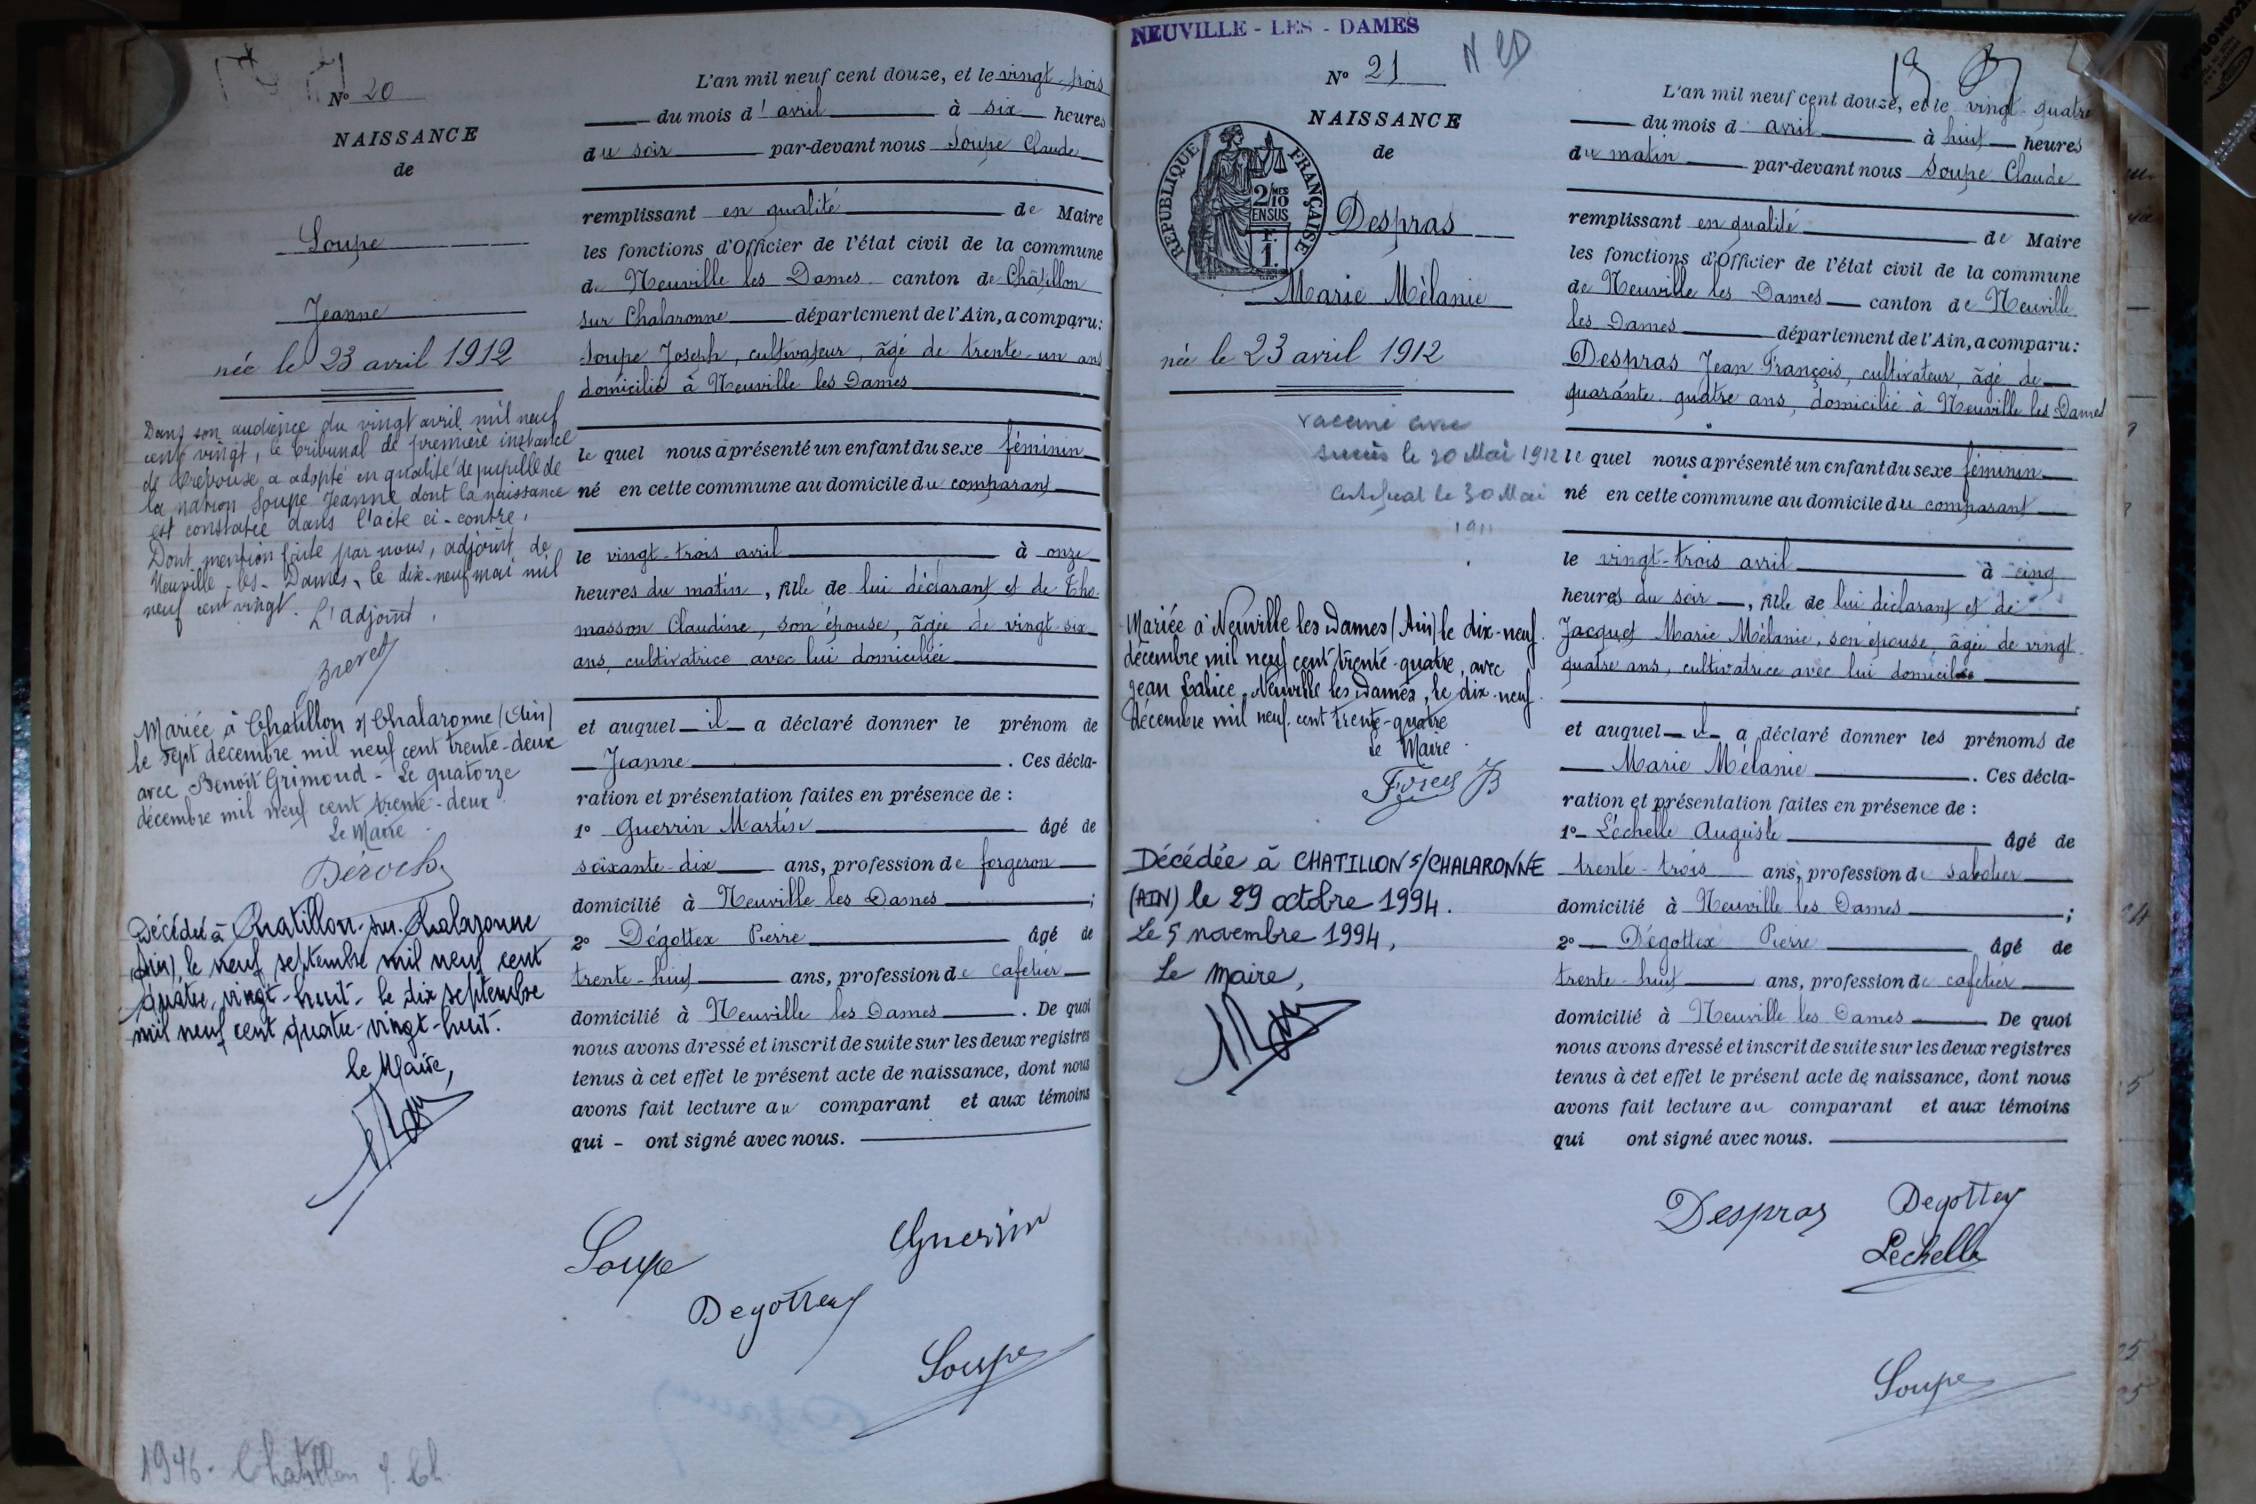 N° 20
NAISSANCE
de
Soupe
Jeanne
née le 23 avril 1912
Dans son audience du vingt avril mil neuf
cent vingt, le Tribunal de première instance
de Trévoux a adopté en qualité de pupille de
la nation Soupe Jeanne dont la naissance
est constatée dans l'acte ci-contre.
Dont mention faite par nous, adjoint de
Neuville-les-Dames, le dix-neuf mai mil
neuf cent vingt. L'adjoint,
Mariée à Chatillon s/ Chalaronne (Ain)
le sept décembre mil neuf cent trente-deux
avec Benoît Grimoud - Le quatorze
décembre mil neuf cent trente-deux.
Le Maire
Décédée à Chatillon-sur-Chalaronne
(Ain), le neuf septembre mil neuf cent
quatre-vingt-huit - le dix septembre
mil neuf cent quatre-vingt-huit.
le Maire,
1946 - Chatillon s. Ch.
L'an mil neuf cent douze, et le vingt-trois
du mois d'avril à six heures
du soir par-devant nous Soupe Claude
remplissant en qualité de Maire
les fonctions d'Officier de l'état civil de la commune
de Neuville les Dames canton de Châtillon
sur Chalaronne département de l'Ain, a comparu:
Soupe Joseph, cultivateur, âgé de trente-un ans
domicilié à Neuville les Dames
le quel nous a présenté un enfant du sexe féminin
né en cette commune au domicile du comparant
le vingt-trois avril à onze
heures du matin, fille de lui déclarant et de Tho-
masson Claudine, son épouse, âgée de vingt-six
ans, cultivatrice avec lui domiciliée
et auquel il a déclaré donner le prénom de
Jeanne. Ces décla-
ration et présentation faites en présence de :
1° Guerrin Martin âgé de
soixante-dix ans, profession de forgeron
domicilié à Neuville les Dames ;
2° Dégottex Pierre âgé de
trente-huit ans, profession de cafetier
domicilié à Neuville les Dames. De quoi
nous avons dressé et inscrit de suite sur les deux registres
tenus à cet effet le présent acte de naissance, dont nous
avons fait lecture au comparant et aux témoins
qui - ont signé avec nous.
Soupe
Guerrin
Degottex
Soupe
NEUVILLE - LES - DAMES
N° 21
NAISSANCE
de
REPUBLIQUE FRANÇAISE
2/10 MES
EN SUS
F.
1.
Despras
Marie Mélanie
née le 23 avril 1912
vacciné avec
succès le 20 Mai 1912
certificat le 30 Mai
1911
Mariée à Neuville les Dames (Ain) le dix-neuf
décembre mil neuf cent trente-quatre, avec
Jean Lalice. Neuville les Dames, le dix-neuf
décembre mil neuf cent trente-quatre
Le Maire
Décédée à CHATILLON S/CHALARONNE
(AIN) le 29 octobre 1994.
Le 5 novembre 1994,
Le Maire,
L'an mil neuf cent douze, et le vingt-quatre
du mois d avril à huit heures
du matin par-devant nous Soupe Claude
remplissant en qualité de Maire
les fonctions d'Officier de l'état civil de la commune
de Neuville les Dames canton de Neuville
les Dames département de l'Ain, a comparu:
Despras Jean François, cultivateur, âgé de
quarante-quatre ans, domicilié à Neuville les Dames
le quel nous a présenté un enfant du sexe féminin
né en cette commune au domicile du comparant
le vingt-trois avril à cinq
heures du soir, fille de lui déclarant et de
Jacquet Marie Mélanie, son épouse, âgée de vingt
quatre ans, cultivatrice avec lui domiciliée
et auquel il a déclaré donner les prénoms de
Marie Mélanie. Ces décla-
ration et présentation faites en présence de :
1° Léchelle Auguste âgé de
trente-trois ans, profession de sabotier
domicilié à Neuville les Dames ;
2° Dégottex Pierre âgé de
trente-huit ans, profession de cafetier
domicilié à Neuville les Dames De quoi
nous avons dressé et inscrit de suite sur les deux registres
tenus à cet effet le présent acte de naissance, dont nous
avons fait lecture au comparant et aux témoins
qui ont signé avec nous.
Despras
Degottex
Lechelle
Soupe